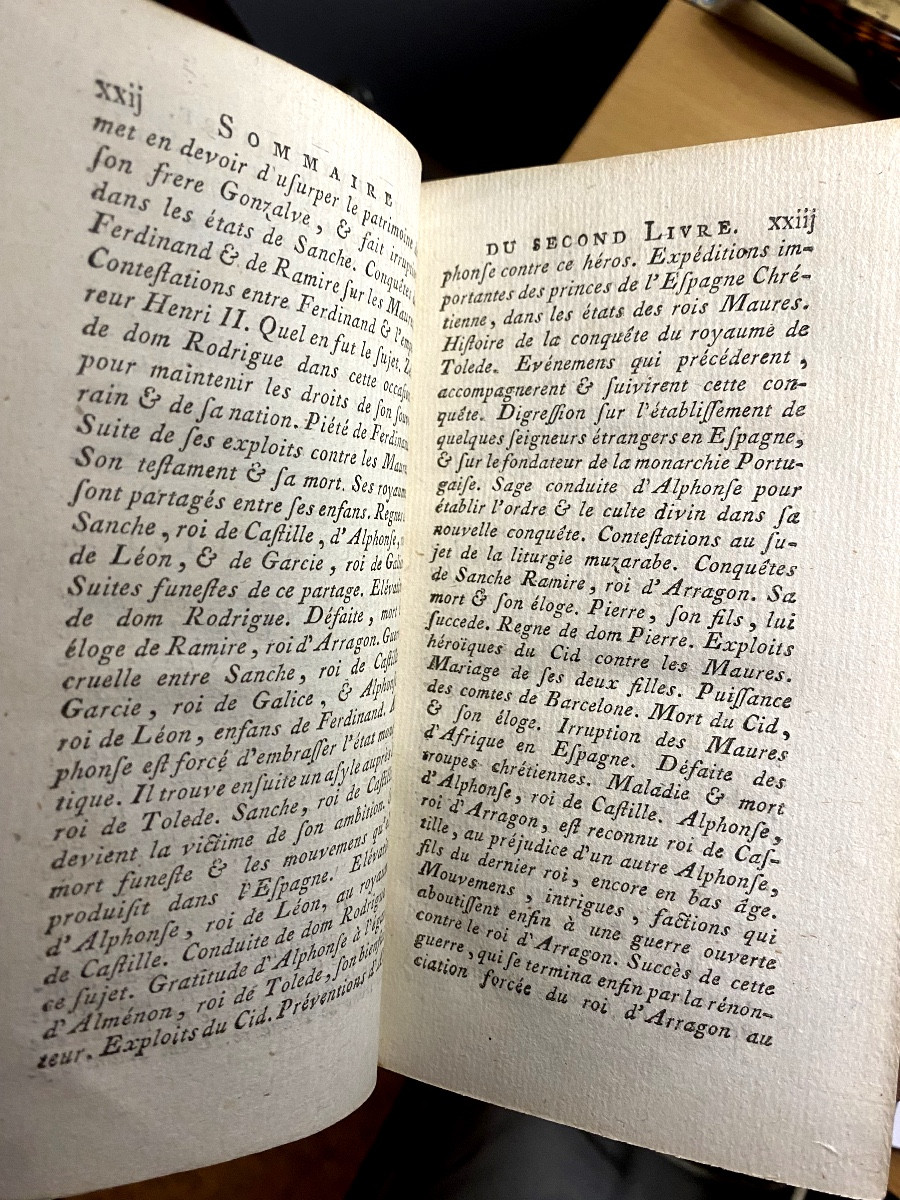 xxij SOMMAIRE
met en devoir d'uſurper le patrimoine
ſon frere Gonzalve, & fait
dans les états de Sanche. Conquêtes
Ferdinand & de Ramire ſur les
Conteſtations entre Ferdinand &
reur Henri II. Quel en fut le ſujet.
de dom Rodrigue dans cette
pour maintenir les droits de ſon
rain & de ſa nation. Piété de
Suite de ſes exploits contre les
Son teſtament & ſa mort. Ses
ſont partagés entre ſes enfans.
Sanche, roi de Caſtille, d'Alphonſe,
de Léon, & de Garcie, roi de
Suites funeſtes de ce partage.
de dom Rodrigue. Défaite, mort
éloge de Ramire, roi d'Arragon.
cruelle entre Sanche, roi de
Garcie, roi de Galice, &
roi de Léon, enfans de Ferdinand.
phonſe eſt forcé d'embraſſer l'état
tique. Il trouve enſuite un aſyle
roi de Tolede. Sanche, roi de
devient la victime de ſon ambition.
mort funeſte & les mouvemens
produiſit dans l'Eſpagne.
d'Alphonſe, roi de Léon, au
de Caſtille. Conduite de dom
ce ſujet. Gratitude d'Alphonſe à
d'Alménon, roi de Tolede, ſon
teur. Exploits du Cid. Préventions
DU SECOND LIVRE. xxiij
phonſe contre ce héros. Expéditions im-
portantes des princes de l'Eſpagne Chré-
tienne, dans les états des rois Maures.
Hiſtoire de la conquête du royaume de
Tolede. Evénemens qui précéderent,
accompagnerent & ſuivirent cette con-
quête. Digreſſion ſur l'établiſſement de
quelques ſeigneurs étrangers en Eſpagne,
& ſur le fondateur de la monarchie Portu-
gaiſe. Sage conduite d'Alphonſe pour
établir l'ordre & le culte divin dans ſa
nouvelle conquête. Conteſtations au ſu-
jet de la liturgie muzarabe. Conquêtes
de Sanche Ramire, roi d'Arragon. Sa
mort & ſon éloge. Pierre, ſon fils, lui
ſuccede. Regne de dom Pierre. Exploits
héroïques du Cid contre les Maures.
Mariage de ſes deux filles. Puiſſance
des comtes de Barcelone. Mort du Cid,
& ſon éloge. Irruption des Maures
d'Afrique en Eſpagne. Défaite des
troupes chrétiennes. Maladie & mort
d'Alphonſe, roi de Caſtille. Alphonſe,
roi d'Arragon, eſt reconnu roi de Caſ-
tille, au préjudice d'un autre Alphonſe,
fils du dernier roi, encore en bas âge.
Mouvemens, intrigues, factions qui
aboutiſſent enfin à une guerre ouverte
contre le roi d'Arragon. Succès de cette
guerre, qui ſe termina enfin par la rénon-
ciation forcée du roi d'Arragon au